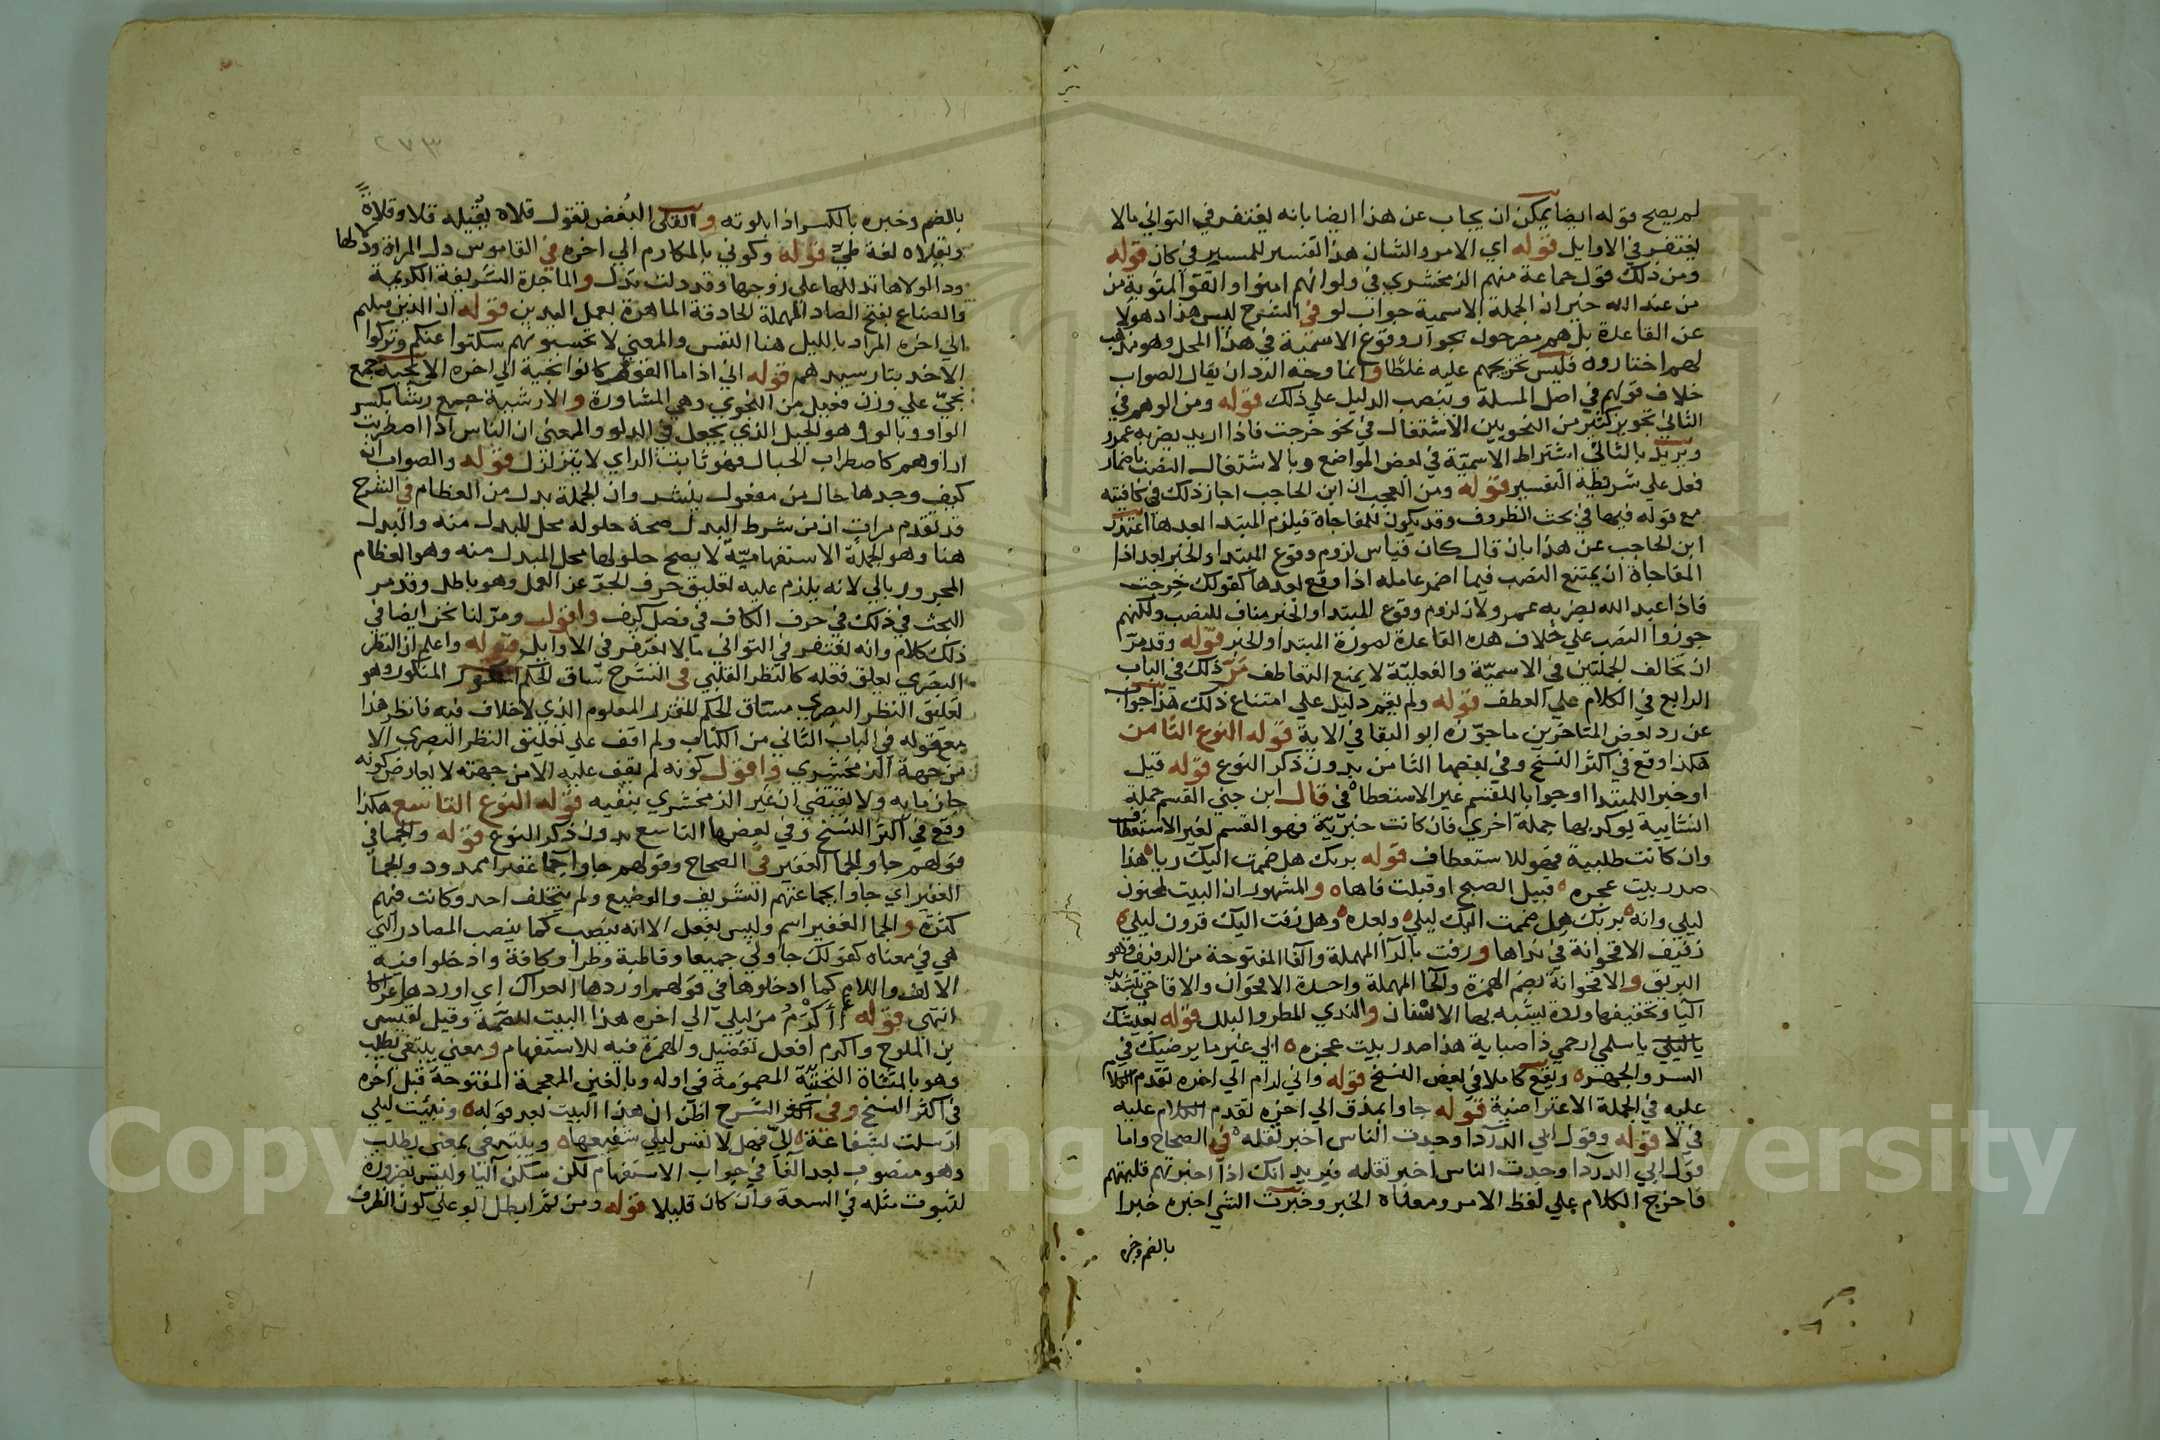 لم يصح قوله ايضا يمكن ان يجاب عن هذا ايضا بانه يغتفر في الثواني مالا
يغتفر في الاوايل قوله اي الامر والشان هذا تفسير للمستتر في كان قوله
ومن ذلك قول جماعة منهم الزمخشري في ولو انهم امنوا واتقوا لمثوبة من
من عند الله خير ان الجملة الاسمية جواب لو في الشرح ليس هذا ذهولا
عن القاعدة بل هم مصرحون بجواز وقوع الاسمية في هذا المحل وهو مذهب
لهم اختاروه فليس تخريجهم عليه غلطا وانما وجه الرد ان يقال الصواب
خلاف قولهم في اصل المسلة وينصب الدليل علي ذلك قوله ومن الوهم في
الثاني تجويز كثير من النحويين الاشتغال في نحو خرجت فاذا زيد يضربه عمرو
ويريد بالثاني اشتراط الاسمية في بعض المواضع وبالاشتغال النصب باضمار
فعل علي شريطة التفسير قوله ومن العجب ان ابن الحاجب اجاز ذلك في كافيته
مع قوله فيها في بحث الظروف وقد يكون للمفاجاة فيلزم المبتدا بعدها اعتذر
ابن الحاجب عن هذا بان قال كان قياس لزوم وقوع المبتدا والخبر بعد اذا
المفاجاة ان يمتنع النصب فيما اضمر عامله اذا وقع بعدها كقولك خرجت
فاذا عبد الله يضربه عمرو لان لزوم وقوع المبتدا والخبر مناف للنصب ولكنهم
جوزوا النصب علي خلاف هذه القاعدة لصورة المبتدا والخبر قوله وقد مر
ان تخالف الجملتين في الاسمية والفعلية لا يمنع التعاطف مر ذلك في الباب
الرابع في الكلام علي العطف قوله ولم يقم دليل علي امتناع ذلك هذا جواب
عن رد بعض المتاخرين ما جوزه ابو البقا في الاية قوله النوع الثامن
هكذا وقع في اكثر النسخ وفي بعضها الثامن بدون ذكر النوع قوله قيل
او خبرا للمبتدا او جوابا للقسم غير الاستعطافي قال ابن جني القسم جملة
انشايية يوكد بها جملة اخري فان كانت خبرية فهو القسم لغير الاستعطاف
وان كانت طلبية فهو للاستعطاف قوله بربك هل ضممت اليك ريا هذا
صدر بيت عجزه قبيل الصبح او قبلت فاها والمشهور ان البيت لمجنون
ليلي وانه بربك هل ضممت اليك ليلي وبعده وهل رفت اليك قرون ليلي
رفيف الاقحوانة في نداها ورفت بالرآ المهملة والفا المفتوحة من الرفيف وهو
البريق والاقحوانة بضم الهمزة والحا المهملة واحدة الاقحوان والاقاحي بتشديد
اليا وتخفيفها وردة يشبه بها الاسنان والندي المطر والبلل قوله بعيشك
يا ليلي يا سلمي ارحمي ذا صبابة هذا صدر بيت عجزه ابي غير ما يرضيك في
السر والجهر ويقع كاملا في بعض النسخ قوله واني لرام الي اخره تقدم الكلام
عليه في الجملة الاعتراضية قوله جاوا بمذق الي اخره تقدم الكلام عليه
في لا قوله وقول ابي الدردا وجدت الناس اخبر تقله في الصحاح واما
قول ابي الدردا وجدت الناس اخبر تقله فيريد انك اذا اخبرتهم قليتهم
فاخرج الكلام علي لفظ الامر ومعناه الخبر وخبرت الشي اخبره خبرا
بالضم وخبره
٢٧٣
بالضم وخبره بالكسر اذا بلوته والقلي البغض تقول قلاه يقليه قلا وقلاة
ويقلاه لغة طي قوله وكوني بالمكارم الي اخره في القاموس دل المراة ودلها
ودالولاها تدللها علي زوجها وقد دلت تدل والماجدة الشريفة الكريمة
والصناع بفتح الصاد المهملة الحاذقة الماهرة بعمل اليدين قوله ان الذين قتلتم
الي اخره المراد بالليل هنا النفس والمعني لا تحسبوهم سكتوا عنكم وتركوا
الاخذ بثار سيدهم قوله اني اذا ما القوم كانوا انجية الي اخره الانجية جمع
نجي علي وزن فعيل من النجوي وهي المشاورة والارشية جمع رشا بكسر
الواو وبالو وهو الحبل الذي يجعل في الدلو والمعني ان الناس اذا اضطربت
اراوهم كاضطراب الحبال فهو ثابت الراي لا يتزلزل قوله والصواب ان
كيف وجدها حال من مفعول ينشز وان الجملة بدل من العظام في الشرح
قد تقدم مرات ان من شرط البدل صحة حلوله محل المبدل منه والبدل
هنا وهو الجملة الاستفهامية لا يصح حلولها محل المبدل منه وهو العظام
المجرور بالي لانه يلزم عليه تعليق حرف الجر عن العمل وهو باطل وقد مر
البحث في ذلك في حرف الكاف في فصل كيف واقول ومر لنا نحن ايضا في
ذلك كلام وانه يغتفر في الثواني ما لا يغتفر في الاوايل قوله واعلم ان النظر
البصري يعلق فعله كالنظر القلبي في الشرح ساق الحكم المنكور وهو
تعليق النظر البصري مساق الحكم المقرر المعلوم الذي لا خلاف فيه فانظر هذا
مع قوله في الباب الثاني من الكتاب ولم اقف علي تعليق النظر البصري الا
من جهة الزمخشري واقول كونه لم يقف عليه الا من جهته لا يعارض كونه
جازما به ولا يقتضي ان غير الزمخشري ينفيه قوله النوع التاسع هكذا
وقع في اكثر النسخ وفي بعضها التاسع بدون ذكر النوع قوله والجما في
قولهم جاوا الجما الغفير في الصحاح وقولهم جاوا جما غفيرا ممدود والجما
الغفير اي جاوا بجماعتهم الشريف والوضيع ولم يتخلف احد وكانت فيهم
كثرة والجما الغفير اسم وليس بفعل الا انه ينصب كما ينصب المصادر التي
هي في معناه كقولك جاوني جميعا وقاطبة وطرا وكافة وادخلوا فيه
الالف واللام كما ادخلوها في قولهم اوردها العراك اي اوردها عراكا
انتهي قوله أأكرم من ليلي الي اخره هذا البيت للصمة وقيل لقيس
بن الملوح واكرم افعل تفضيل والهمزة فيه للاستفهام ومعني يبتغي يطلب
وهو بالمثناة التحتية المضمومة في اوله وبالغين المعجمة المفتوحة قبل اخره
في اكثر النسخ وفي الشرح اظن ان هذا البيت بعد قوله ونبئت ليلي
ارسلت بشفاعة الي فهل لا نفس ليلي شفيعها ويبتغي بمعني يطلب
وهو منصوب بعد الفا في جواب الاستفهام لكن سكن اليا وليس ضرورة
لثبوت مثله في السعة وان كان قليلا قوله ومن ثم ابطل ابو علي كون الظرف